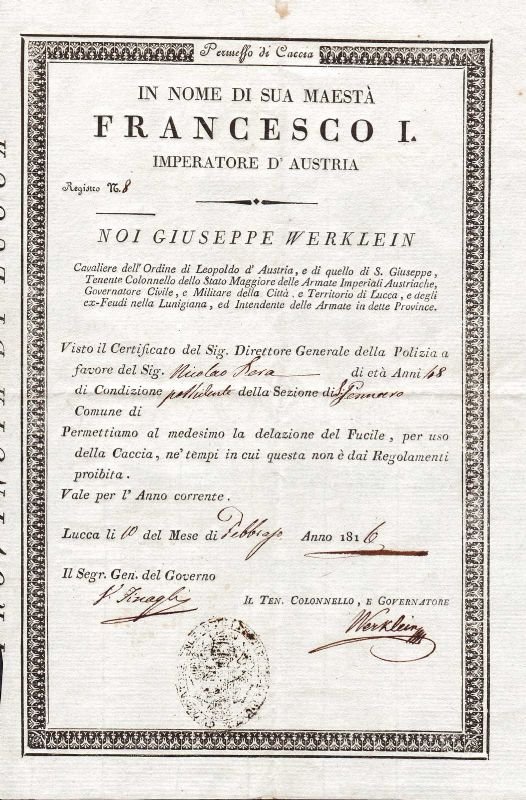 Permesso di Caccia
IN NOME DI SUA MAESTÀ
FRANCESCO I.
IMPERATORE D' AUSTRIA
Registro N. 8
NOI GIUSEPPE WERKLEIN
Cavaliere dell' Ordine di Leopoldo d' Austria, e di quello di S. Giuseppe,
Tenente Colonnello dello Stato Maggiore delle Armate Imperiali Austriache,
Governatore Civile, e Militare della Città, e Territorio di Lucca, e degli
ex-Feudi nella Lunigiana, ed Intendente delle Armate in dette Province.
Visto il Certificato del Sig. Direttore Generale della Polizia a
favore del Sig. Nicolao Pera di età Anni 48
di Condizione possidente della Sezione di S. Gennaro
Comune di
Permettiamo al medesimo la delazione del Fucile, per uso
della Caccia, ne' tempi in cui questa non è dai Regolamenti
proibita.
Vale per l' Anno corrente.
Lucca li 10 del Mese di Febbrajo Anno 1816
Il Segr. Gen. del Governo
IL TEN. COLONNELLO, E GOVERNATORE
Werklein